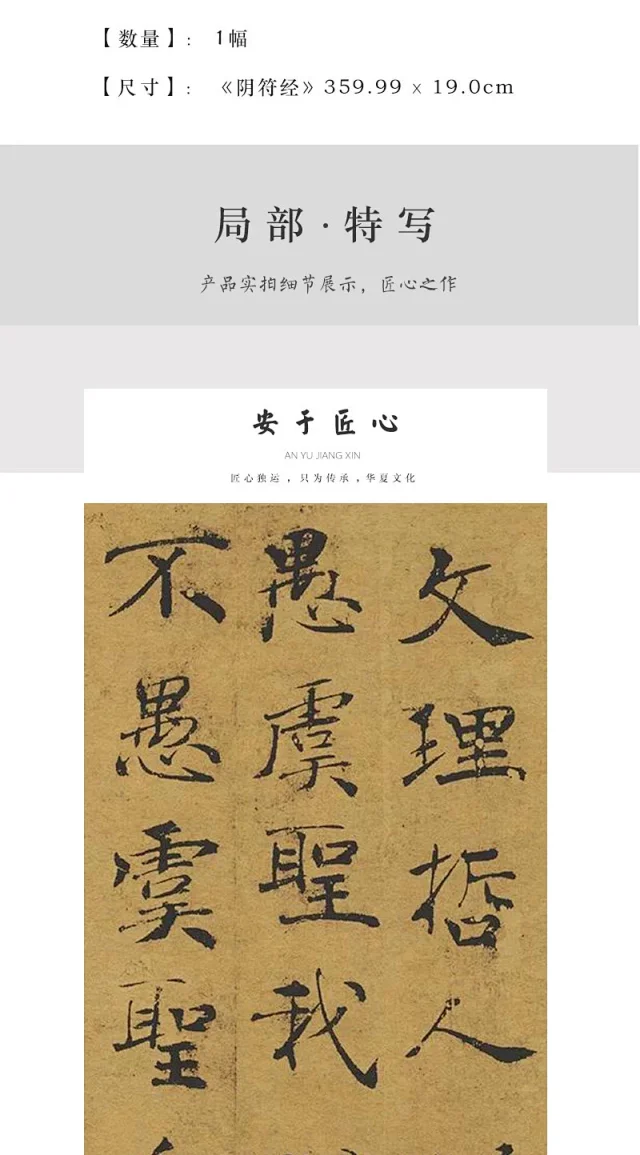 【数量】： 1幅
【尺寸】： 《阴符经》359.99 × 19.0cm
局部·特写
产品实拍细节展示，匠心之作
安于匠心
AN YU JIANG XIN
匠心独运，只为传承，华夏文化
文理哲人
愚虞聖我
不愚虞聖